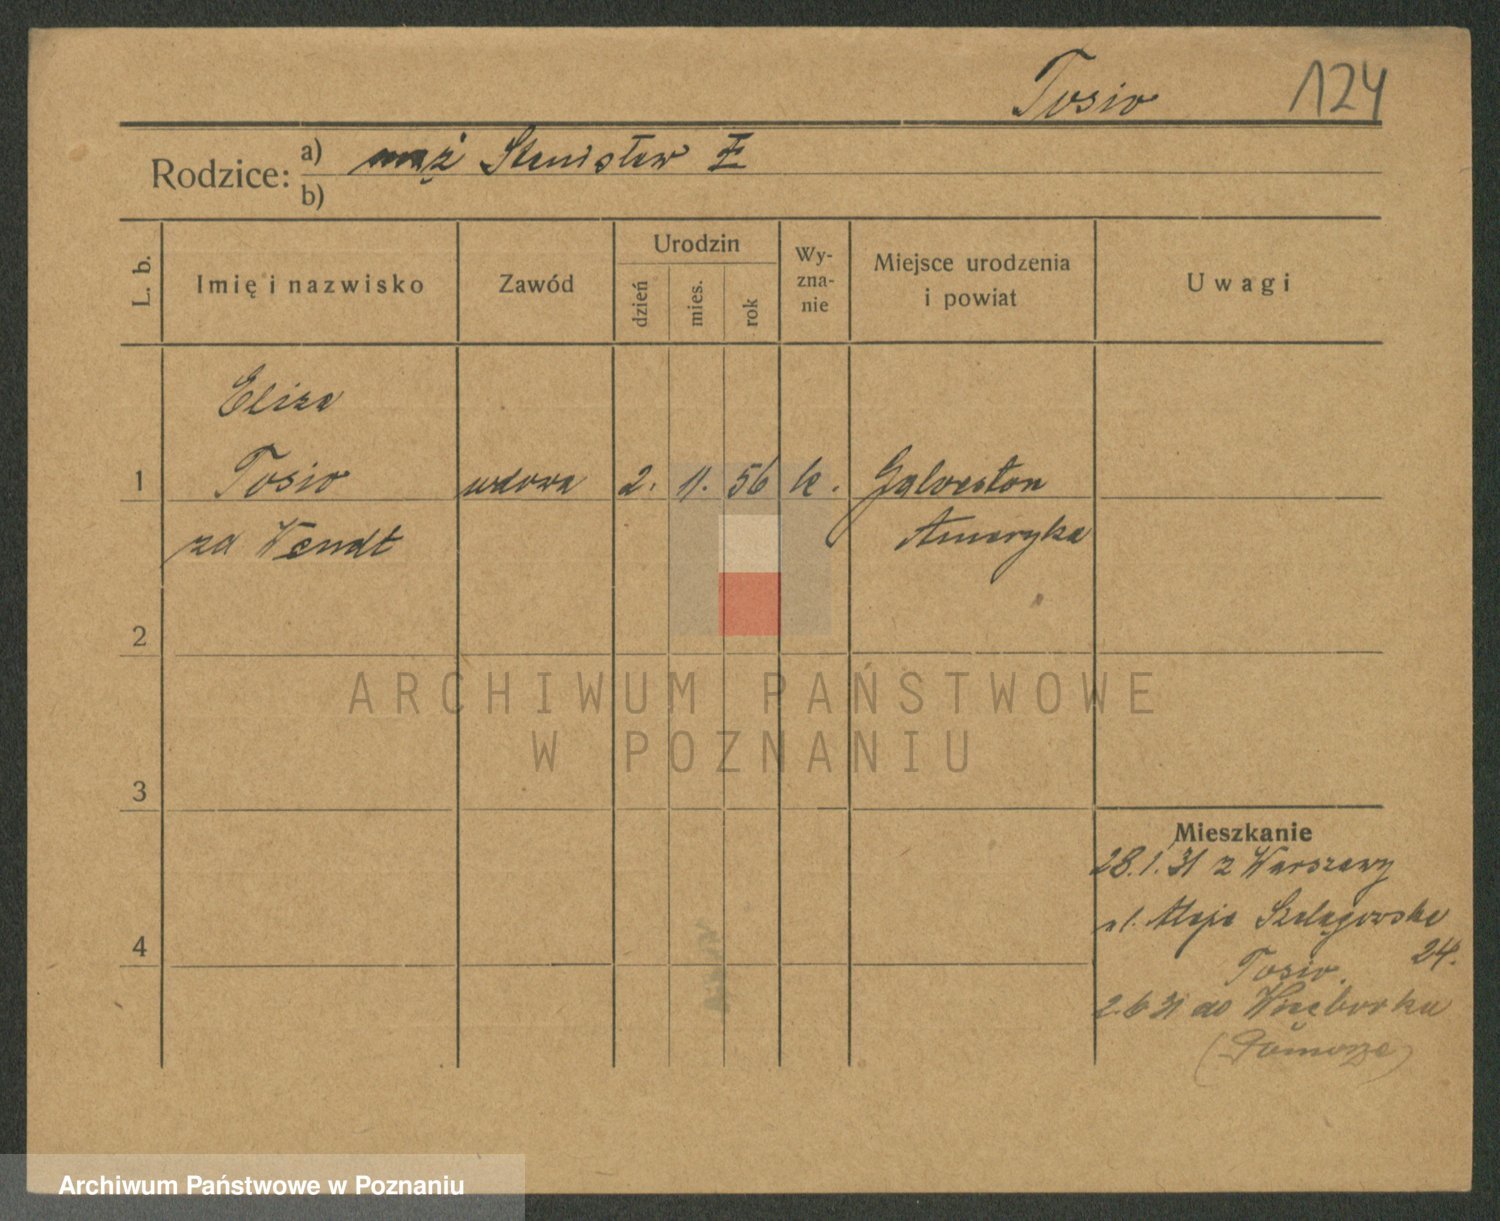 Tosio 124
Rodzice: a) mąż Stanisław
b)
L. b. Imię i nazwisko Zawód Urodzin dzień mies. rok Wy-zna-nie Miejsce urodzenia i powiat Uwagi
Eliza
1 Tosio wdowa 2. 11. 56 k. Galveston
zd Wendt Ameryka
2
ARCHIWUM PAŃSTWOWE
W POZNANIU
3
Mieszkanie
28.1.31 z Warszawy
Aleje Szelągowska
4 24.
Tosio.
2.6 31 do Więcborka
(Pomorze)
Archiwum Państwowe w Poznaniu